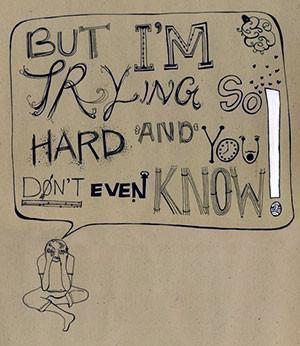 BUT I'M
TRYING SO
HARD AND YOU
DON'T EVEN KNOW!